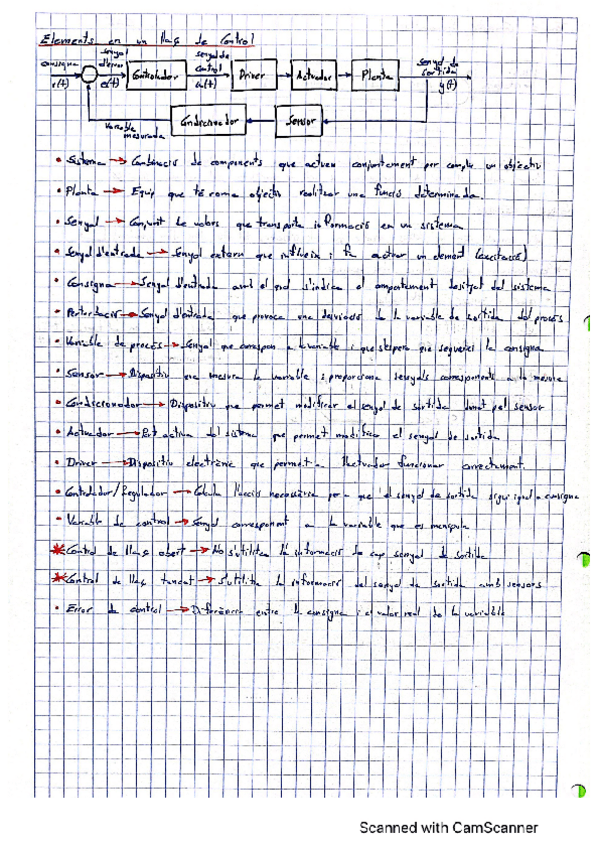 Elements en un llaç de control
consigna
r(t)
senyal d'error
e(t)
Controlador
senyal de control
u(t)
Driver
Actuador
Planta
senyal de sortida
y(t)
Variable mesurada
Condicionador
Sensor
• Sistema → Combinació de components que actuen conjuntament per complir un objectiu
• Planta → Equip que té com a objectiu realitzar una funció determinada.
• Senyal → Conjunt de valors que transporta informació en un sistema
• Senyal d'entrada → Senyal extern que influeix i fa activar un element (excitació)
• Consigna → Senyal d'entrada amb el qual s'indica el comportament desitjat del sistema
• Pertorbació → Senyal d'entrada que provoca una desviació de la variable de sortida del procés
• Variable de procés → Senyal que correspon a la variable i que s'espera que segueixi la consigna
• Sensor → Dispositiu que mesura la variable i proporciona senyals corresponents a la mesura
• Condicionador → Dispositiu que permet modificar el senyal de sortida donat pel sensor
• Actuador → Part activa del sistema que permet modificar el senyal de sortida
• Driver → Dispositiu electrònic que permet a l'actuador funcionar correctament.
• Controlador/Regulador → Calcula l'acció necessària per a que el senyal de sortida sigui igual a consigna
• Variable de control → Senyal corresponent a la variable que es manipula
* Control de llaç obert → No s'utilitza la informació de cap senyal de sortida
* Control de llaç tancat → S'utilitza la informació del senyal de sortida amb sensors
• Error de control → Diferència entre la consigna i el valor real de la variable
Scanned with CamScanner